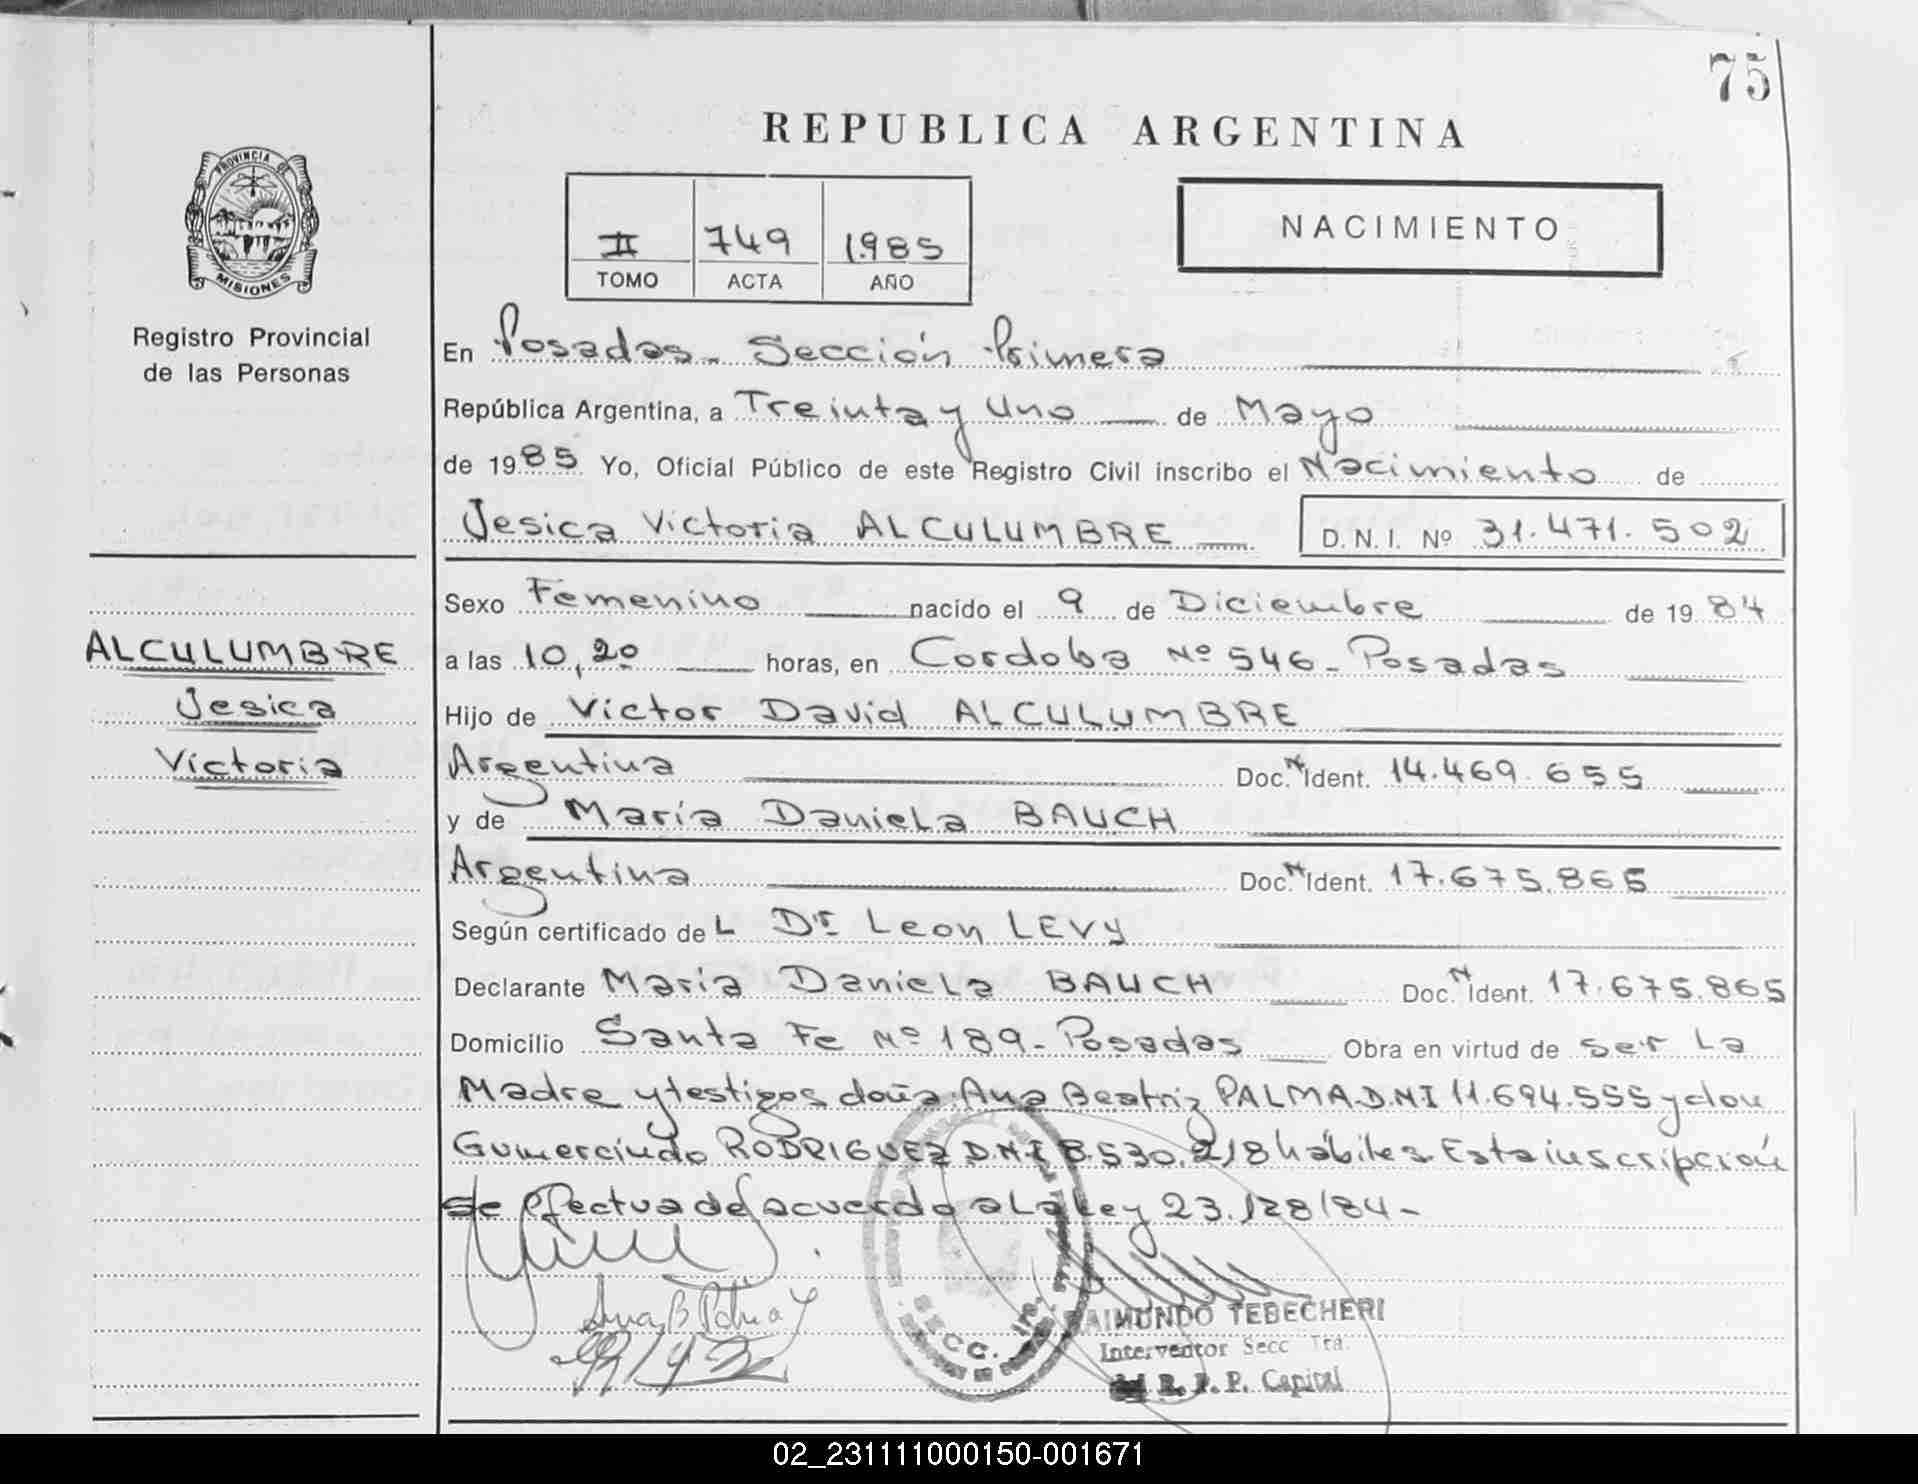 75
REPUBLICA ARGENTINA
PROVINCIA DE
MISIONES
II 749 1.985
TOMO ACTA AÑO
NACIMIENTO
Registro Provincial
de las Personas
En Posadas - Sección Primera
República Argentina, a Treinta y Uno — de Mayo
de 1985 Yo, Oficial Público de este Registro Civil inscribo el Nacimiento de
Jesica Victoria ALCULUMBRE — D.N.I. Nº 31.471.502
Sexo Femenino nacido el 9 de Diciembre de 1984
ALCULUMBRE
Jesica
Victoria
a las 10,20 horas, en Cordoba Nº 546 - Posadas
Hijo de Victor David ALCULUMBRE
Argentina Doc. N Ident. 14.469.655
y de María Daniela BAUCH
Argentina Doc. N Ident. 17.675.865
Según certificado del Dr Leon LEVY
Declarante María Daniela BAUCH Doc. N Ident. 17.675.865
Domicilio Santa Fe Nº 189 - Posadas Obra en virtud de ser la
Madre y testigos doña Ana Beatriz PALMA D.N.I 11.694.555 y don
Gumercindo RODRIGUEZ D.N.I 8.530.218 hábiles Esta inscripción
se efectua de acuerdo a la Ley 23.128/84 -
SECC. 1RA.
RAIMUNDO TEBECHERI
Interventor Secc 1ra.
R. P. P. Capital
02_231111000150-001671